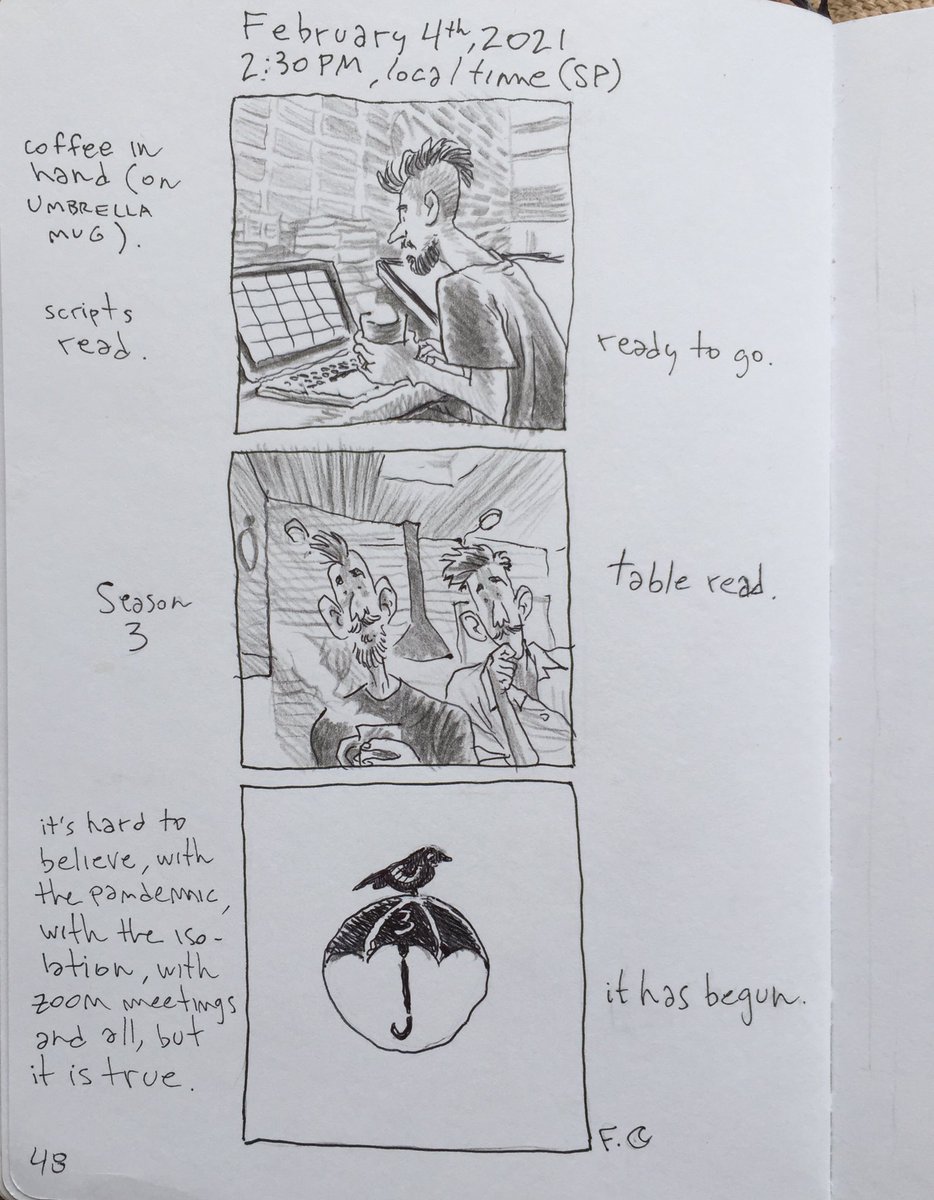 February 4th, 2021
2:30PM, local time (SP)
coffee in
hand (on
UMBRELLA
MUG).
scripts
read.
ready to go.
Season
3
table read.
it's hard to
believe, with
the pandemic,
with the iso-
lation, with
zoom meetings
and all, but
it is true.
3
it has begun.
F.
48